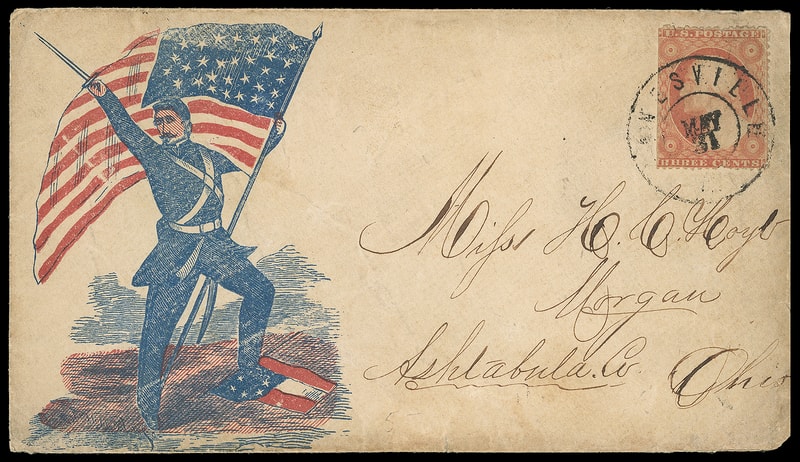 U.S. POSTAGE
NESVILLE
MAY
31
THREE CENTS
Miſs H. C. Hoyt
Morgan
Ashtabula. Co Ohio